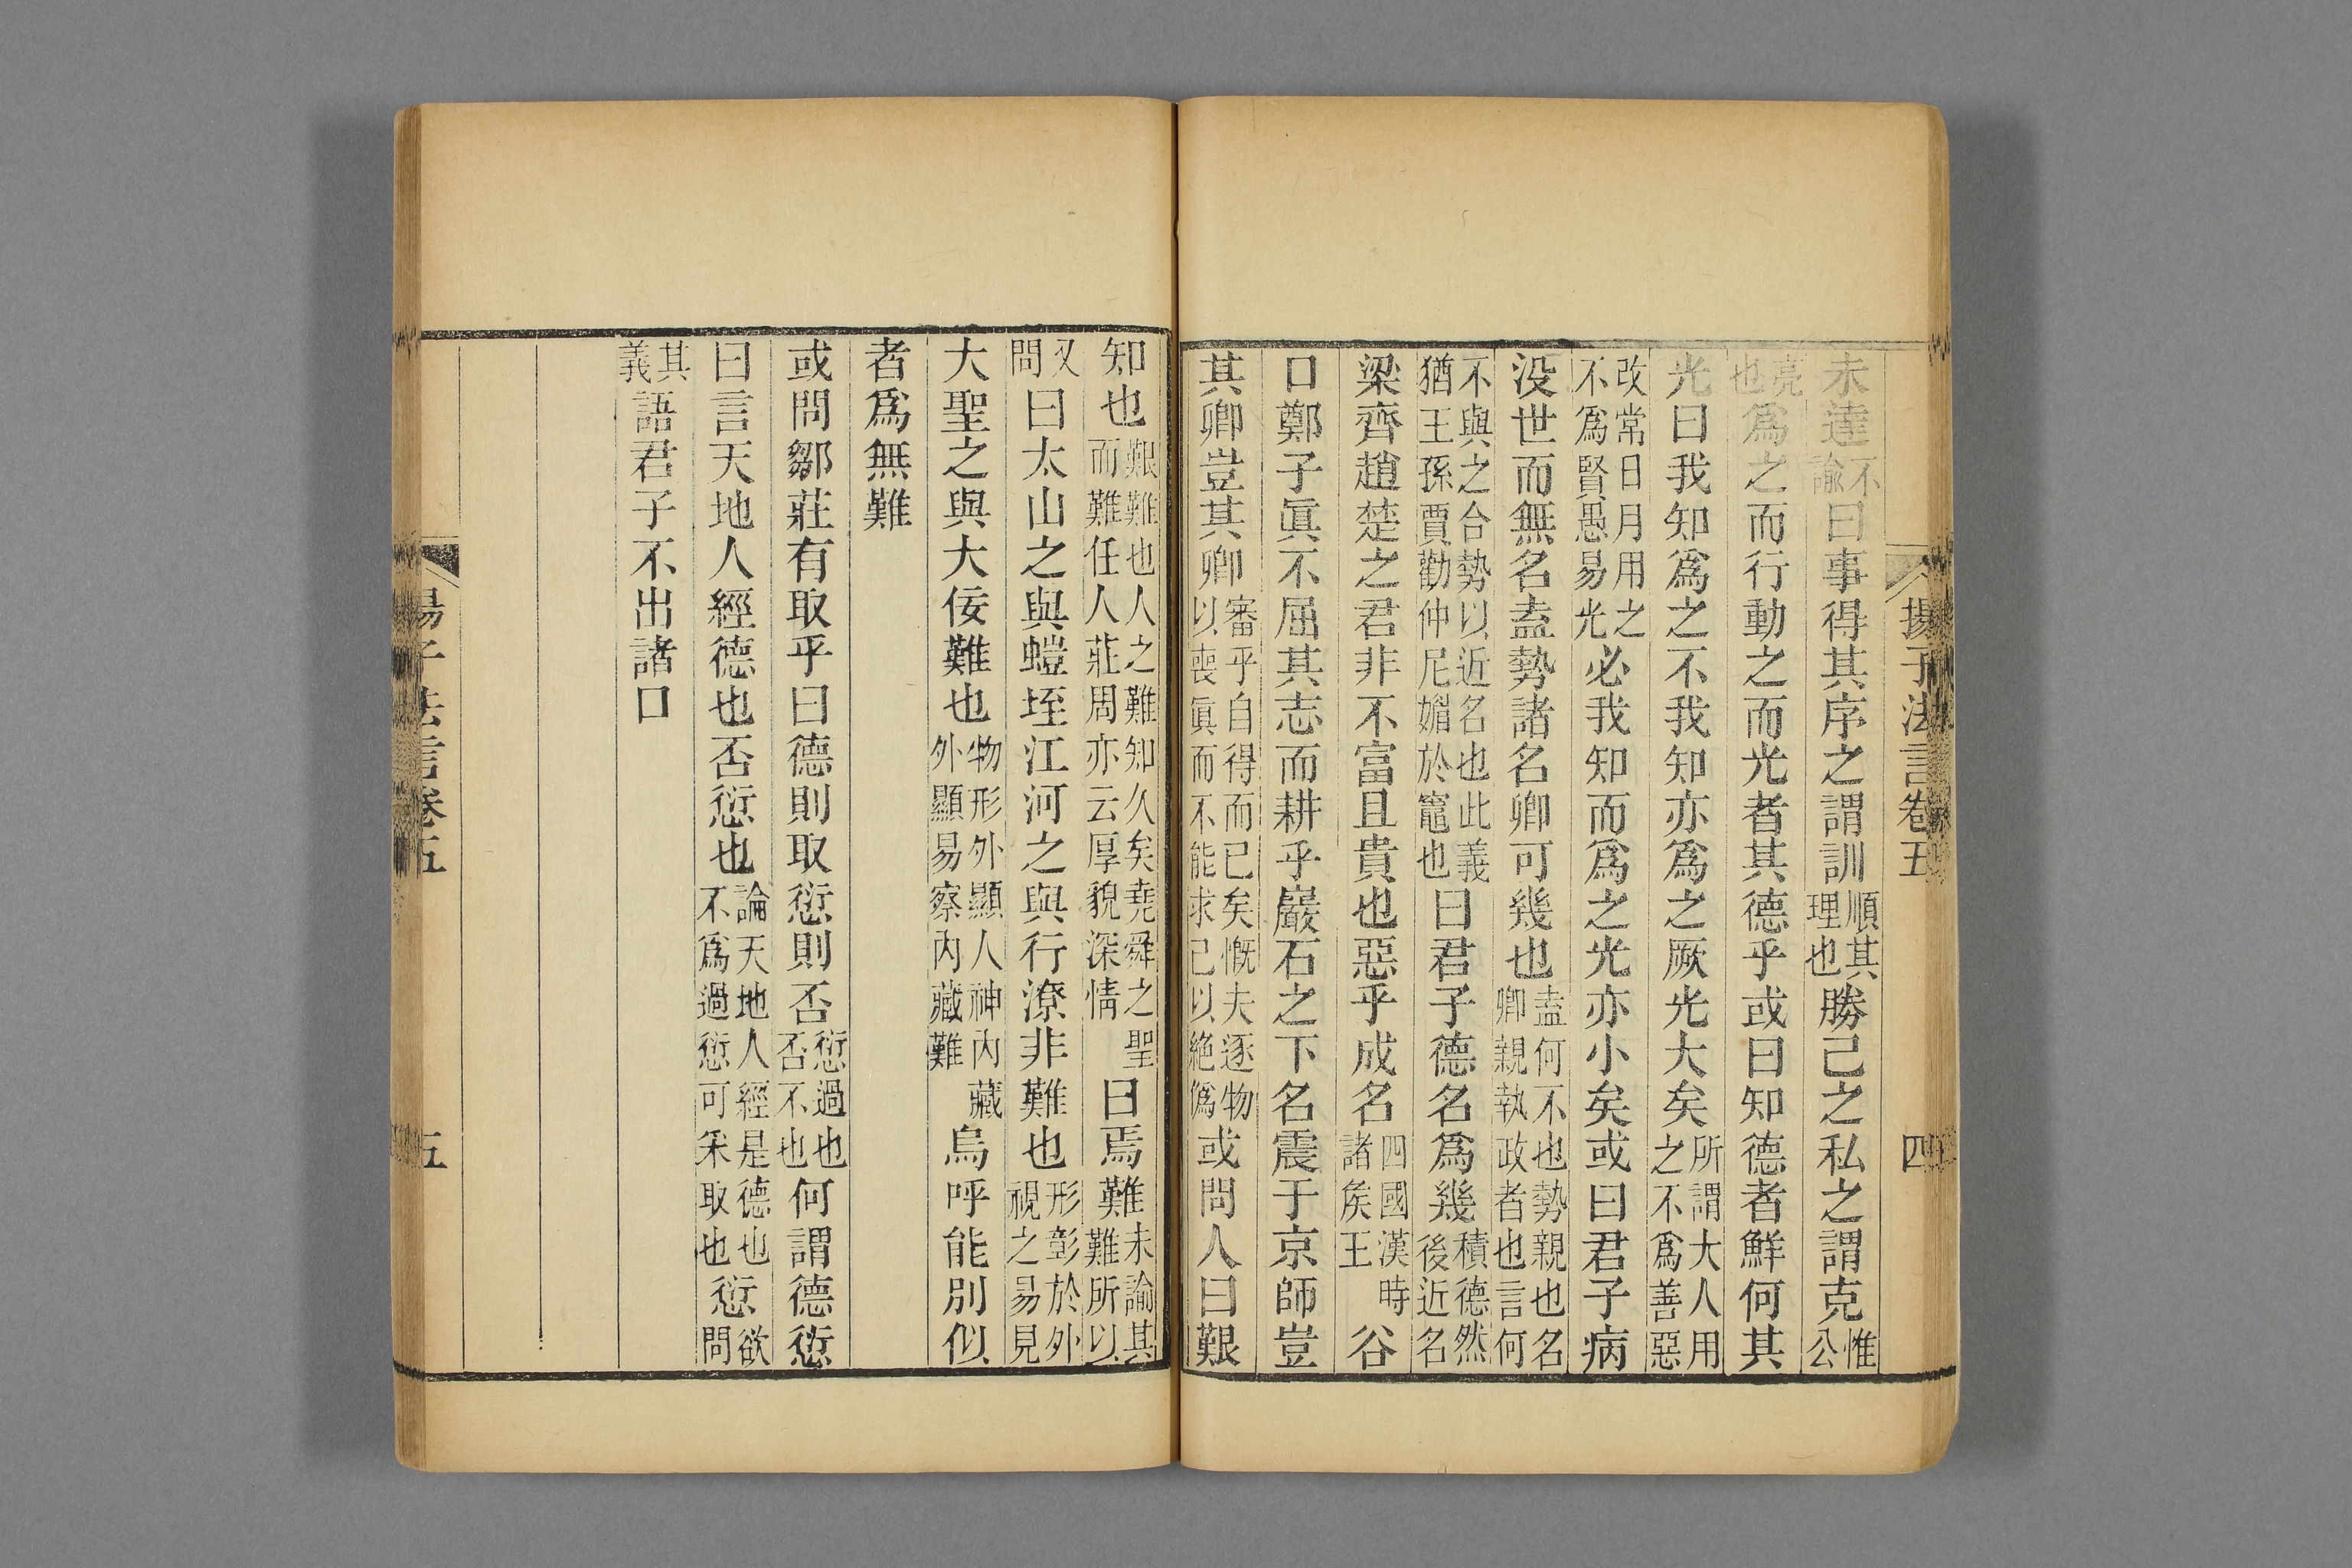 揚子法言卷五　四
未達不諭曰事得其序之謂訓順其理也勝己之私之謂克惟公
亮也爲之而行動之而光者其德乎或曰知德者鮮何其
光曰我知爲之不我知亦爲之厥光大矣所謂大人用之不爲善惡
改常日月用之不爲賢愚易光必我知而爲之光亦小矣或曰君子病
没世而無名盍勢諸名卿可幾也盍何不也勢親也名卿親執政者也言何
不與之合勢以近名也此義猶王孫賈勸仲尼媚於竈也曰君子德名爲幾積德然後近名
梁齊趙楚之君非不富且貴也惡乎成名四國漢時諸矦王谷
口鄭子眞不屈其志而耕乎巖石之下名震于京師豈
其卿豈其卿審乎自得而已矣慨夫逐物以喪眞而不能求己以絶僞或問人曰艱
知也艱難也人之難知久矣堯舜之聖而難任人莊周亦云厚貌深情曰焉難未諭其難所以
又問曰太山之與螘垤江河之與行潦非難也形彰於外視之易見
大聖之與大佞難也物形外顯人神內藏外顯易察內藏難烏呼能別似
者爲無難
或問鄒莊有取乎曰德則取愆則否愆過也否不也何謂德愆
曰言天地人經德也否愆也論天地人經是德也不爲過愆可采取也愆欲問
其義語君子不出諸口
揚子法言卷五　五